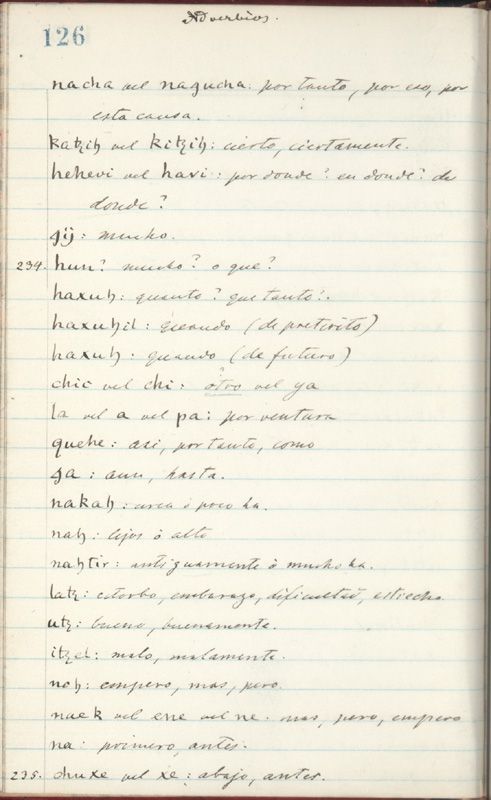 Adverbios.
126
nacha vel nagucha: por tanto, por eso, por
esta causa.
katzih vel kitzih: cierto, ciertamente.
hehevi vel havi: por donde? en donde? de
donde?
qij: mucho.
234. hun? mucho? o que?
haxuh: quanto? que tanto?
haxuhil: quando (de pretirito)
haxuh: quando (de futuro)
chic vel chi: otro vel ya
la vel a vel pa: por ventura
quehe: asi, por tanto, como
ga: aun, hasta.
nakah: cerca ò poco ha.
nah: lejos ò alto
nahtir: antiguamente ò mucho ha.
latz: estorbo, embarazo, dificultad, estrecho
utz: bueno, buenamente.
itzel: malo, malamente.
noh: empero, mas, pero.
naek vel ene vel ne. mas, pero, empero
na: primero, antes.
235. chuxe vel xe: abajo, antes.